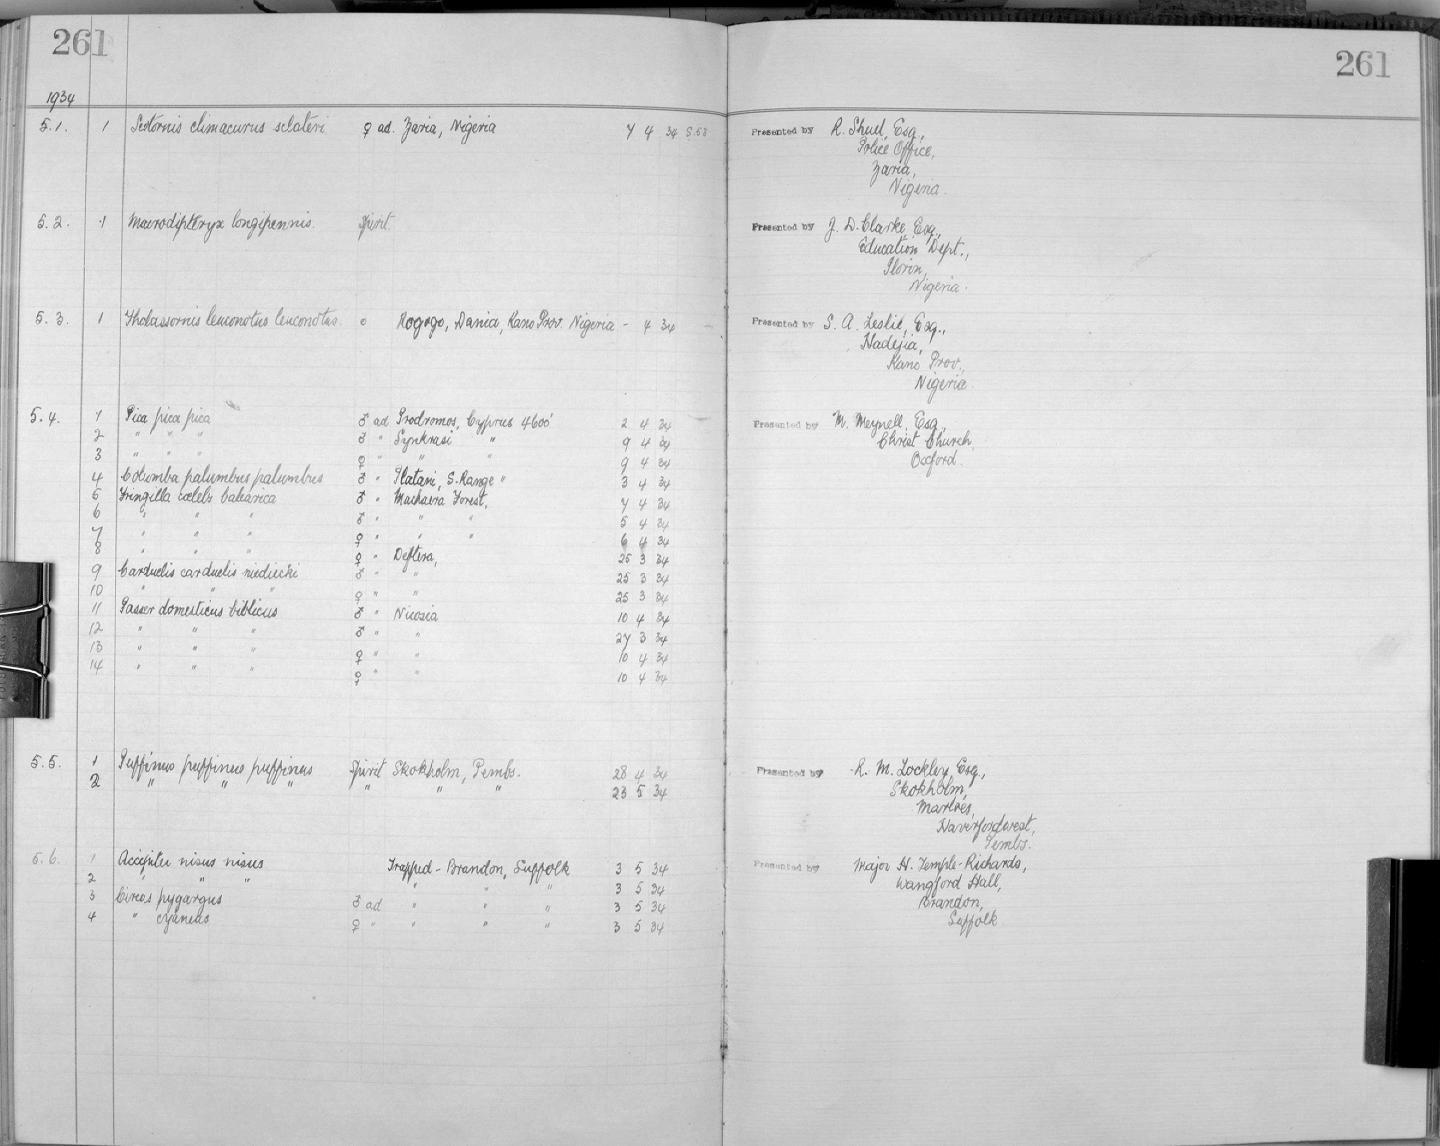 261
261
1934
5.1. 1 Scotornis climacurus sclateri ♀ ad. Zaria, Nigeria 7 4 34 S.53 Presented by R. Shuel, Esq.,
Police Office,
Zaria,
Nigeria.
5.2. 1 Macrodipteryx longipennis. Spirit. Presented by J. D. Clarke, Esq.,
Education Dept.,
Ilorin,
Nigeria.
5.3. 1 Thalassornis leuconotus leuconotus. o Rogogo, Dania, Kano Prov. Nigeria - 4 34 Presented by S. A. Leslie, Esq.,
Hadejia,
Kano Prov.,
Nigeria.
5.4. 1 Pica pica pica ♂ ad Prodromos, Cyprus 4600' 2 4 34 Presented by M. Meynell, Esq.,
Christ Church,
Oxford.
2 " " " ♂ " Synkrasi " 9 4 34
3 " " " ♀ " " " 9 4 34
4 Columba palumbus palumbus ♂ " Platani, S. Range " 3 4 34
5 Fringilla cœlebs balearica ♂ " Machaira Forest, 7 4 34
6 " " " ♂ " " " 5 4 34
7 " " " ♀ " " " 6 4 34
8 " " " ♀ " Deftera, 25 3 34
9 Carduelis carduelis niediecki ♂ " " 25 3 34
10 " " " ♀ " " 25 3 34
11 Passer domesticus biblicus ♂ " Nicosia 10 4 34
12 " " " ♂ " " 27 3 34
13 " " " ♀ " " 10 4 34
14 " " " ♀ " " 10 4 34
5.5. 1 Puffinus puffinus puffinus Spirit Skokholm, Pembs. 28 4 34 Presented by R. M. Lockley, Esq.,
2 " " " " " " 23 5 34 Skokholm,
Marloes,
Haverfordwest,
Pembs.
5.6. 1 Accipiter nisus nisus Trapped - Brandon, Suffolk 3 5 34 Presented by Major H. Temple-Richards,
2 " " " " " " 3 5 34 Wangford Hall,
3 Circus pygargus ♂ ad " " " 3 5 34 Brandon,
4 " cyaneus ♀ " " " " 3 5 34 Suffolk